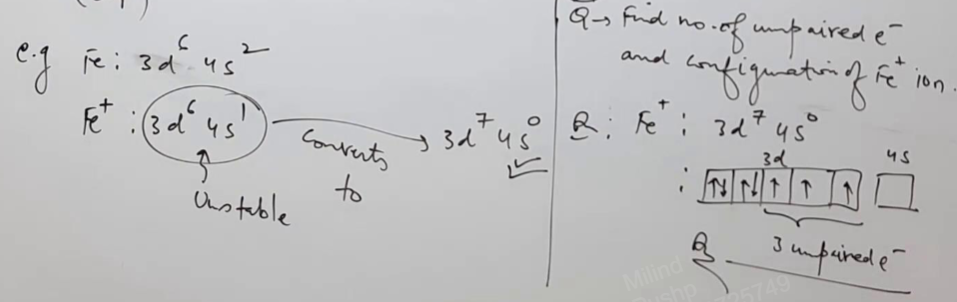 e.g Fe: 3d⁶ 4s²
Fe⁺ : 3d⁶ 4s¹ Converts to 3d⁷ 4s⁰
Unstable
Q→ Find no. of unpaired e⁻
and configuration of Fe⁺ ion.
Q: Fe⁺: 3d⁷ 4s⁰
3d 4s
: ↑↓ ↑↓ ↑ ↑ ↑
3 unpaired e⁻
Q
Milind